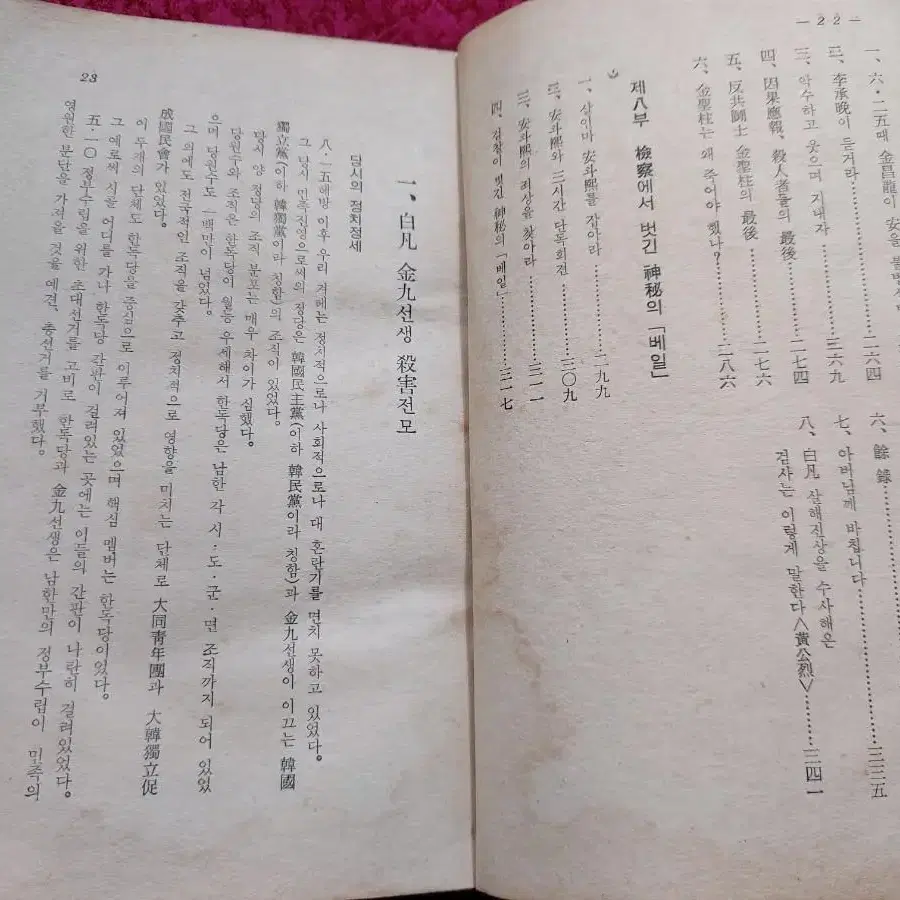 — 22 —
一、六·二五때 金昌龍이 安을
二、李承晩이 듣거라……二六四
三、악수하고 웃으며 지내자……二六九
四、因果應報、殺人者들의 最後……二七四
五、反共鬪士 金聖柱의 最後……二七六
六、金聖柱는 왜 죽어야 했나?……二八六
제八부 檢察에서 벗긴 神秘의 「베일」
一、살인마 安斗熙를 잡아라……二九九
二、安斗熙와 三시간 단독회전……三〇九
三、安斗熙의 찾아라……三一一
四、검찰이 벗긴 神秘의 「베일」……三一七
六、餘錄……三三五
七、아버님께 바칩니다……
八、白凡 살해진상을 수사해온
검사는 이렇게 말한다<黃公烈>……三四一
23
一、白凡 金九선생 殺害전모
당시의 정치정세
八·一五해방 이후 우리 겨레는 정치적으로나 사회적으로나 대 혼란기를 면치 못하고 있었다.
그 당시 민족진영으로써의 정당은 韓國民主黨(이하 韓民黨이라 칭함)과 金九선생이 이끄는 韓國
獨立黨(이하 韓獨黨이라 칭함)의 조직이 있었다.
당시 양 정당의 조직 분포는 매우 차이가 심했다.
당원수와 조직은 한독당이 월등 우세해서 한독당은 남한 각 시·도·군·면 조직까지 되어 있었
으며 당원수도 一백만이 넘었었다.
그 외에도 전국적인 조직을 갖추고 정치적으로 영향을 미치는 단체로 大同靑年團과 大韓獨立促
成國民會가 있었다.
이 두개의 단체도 한독당을 중심으로 이루어져 있었으며 핵심 멤버는 한독당이었다.
그 예로써 시골 어디를 가나 한독당 간판이 걸려있는 곳에는 이들의 간판이 나란히 걸려있었다.
五·一〇 정부수립을 위한 초대선거를 고비로 한독당과 金九선생은 남한만의 정부수립이 민족의
영원한 분단을 가져올 것을 예견、총선거를 거부했다.